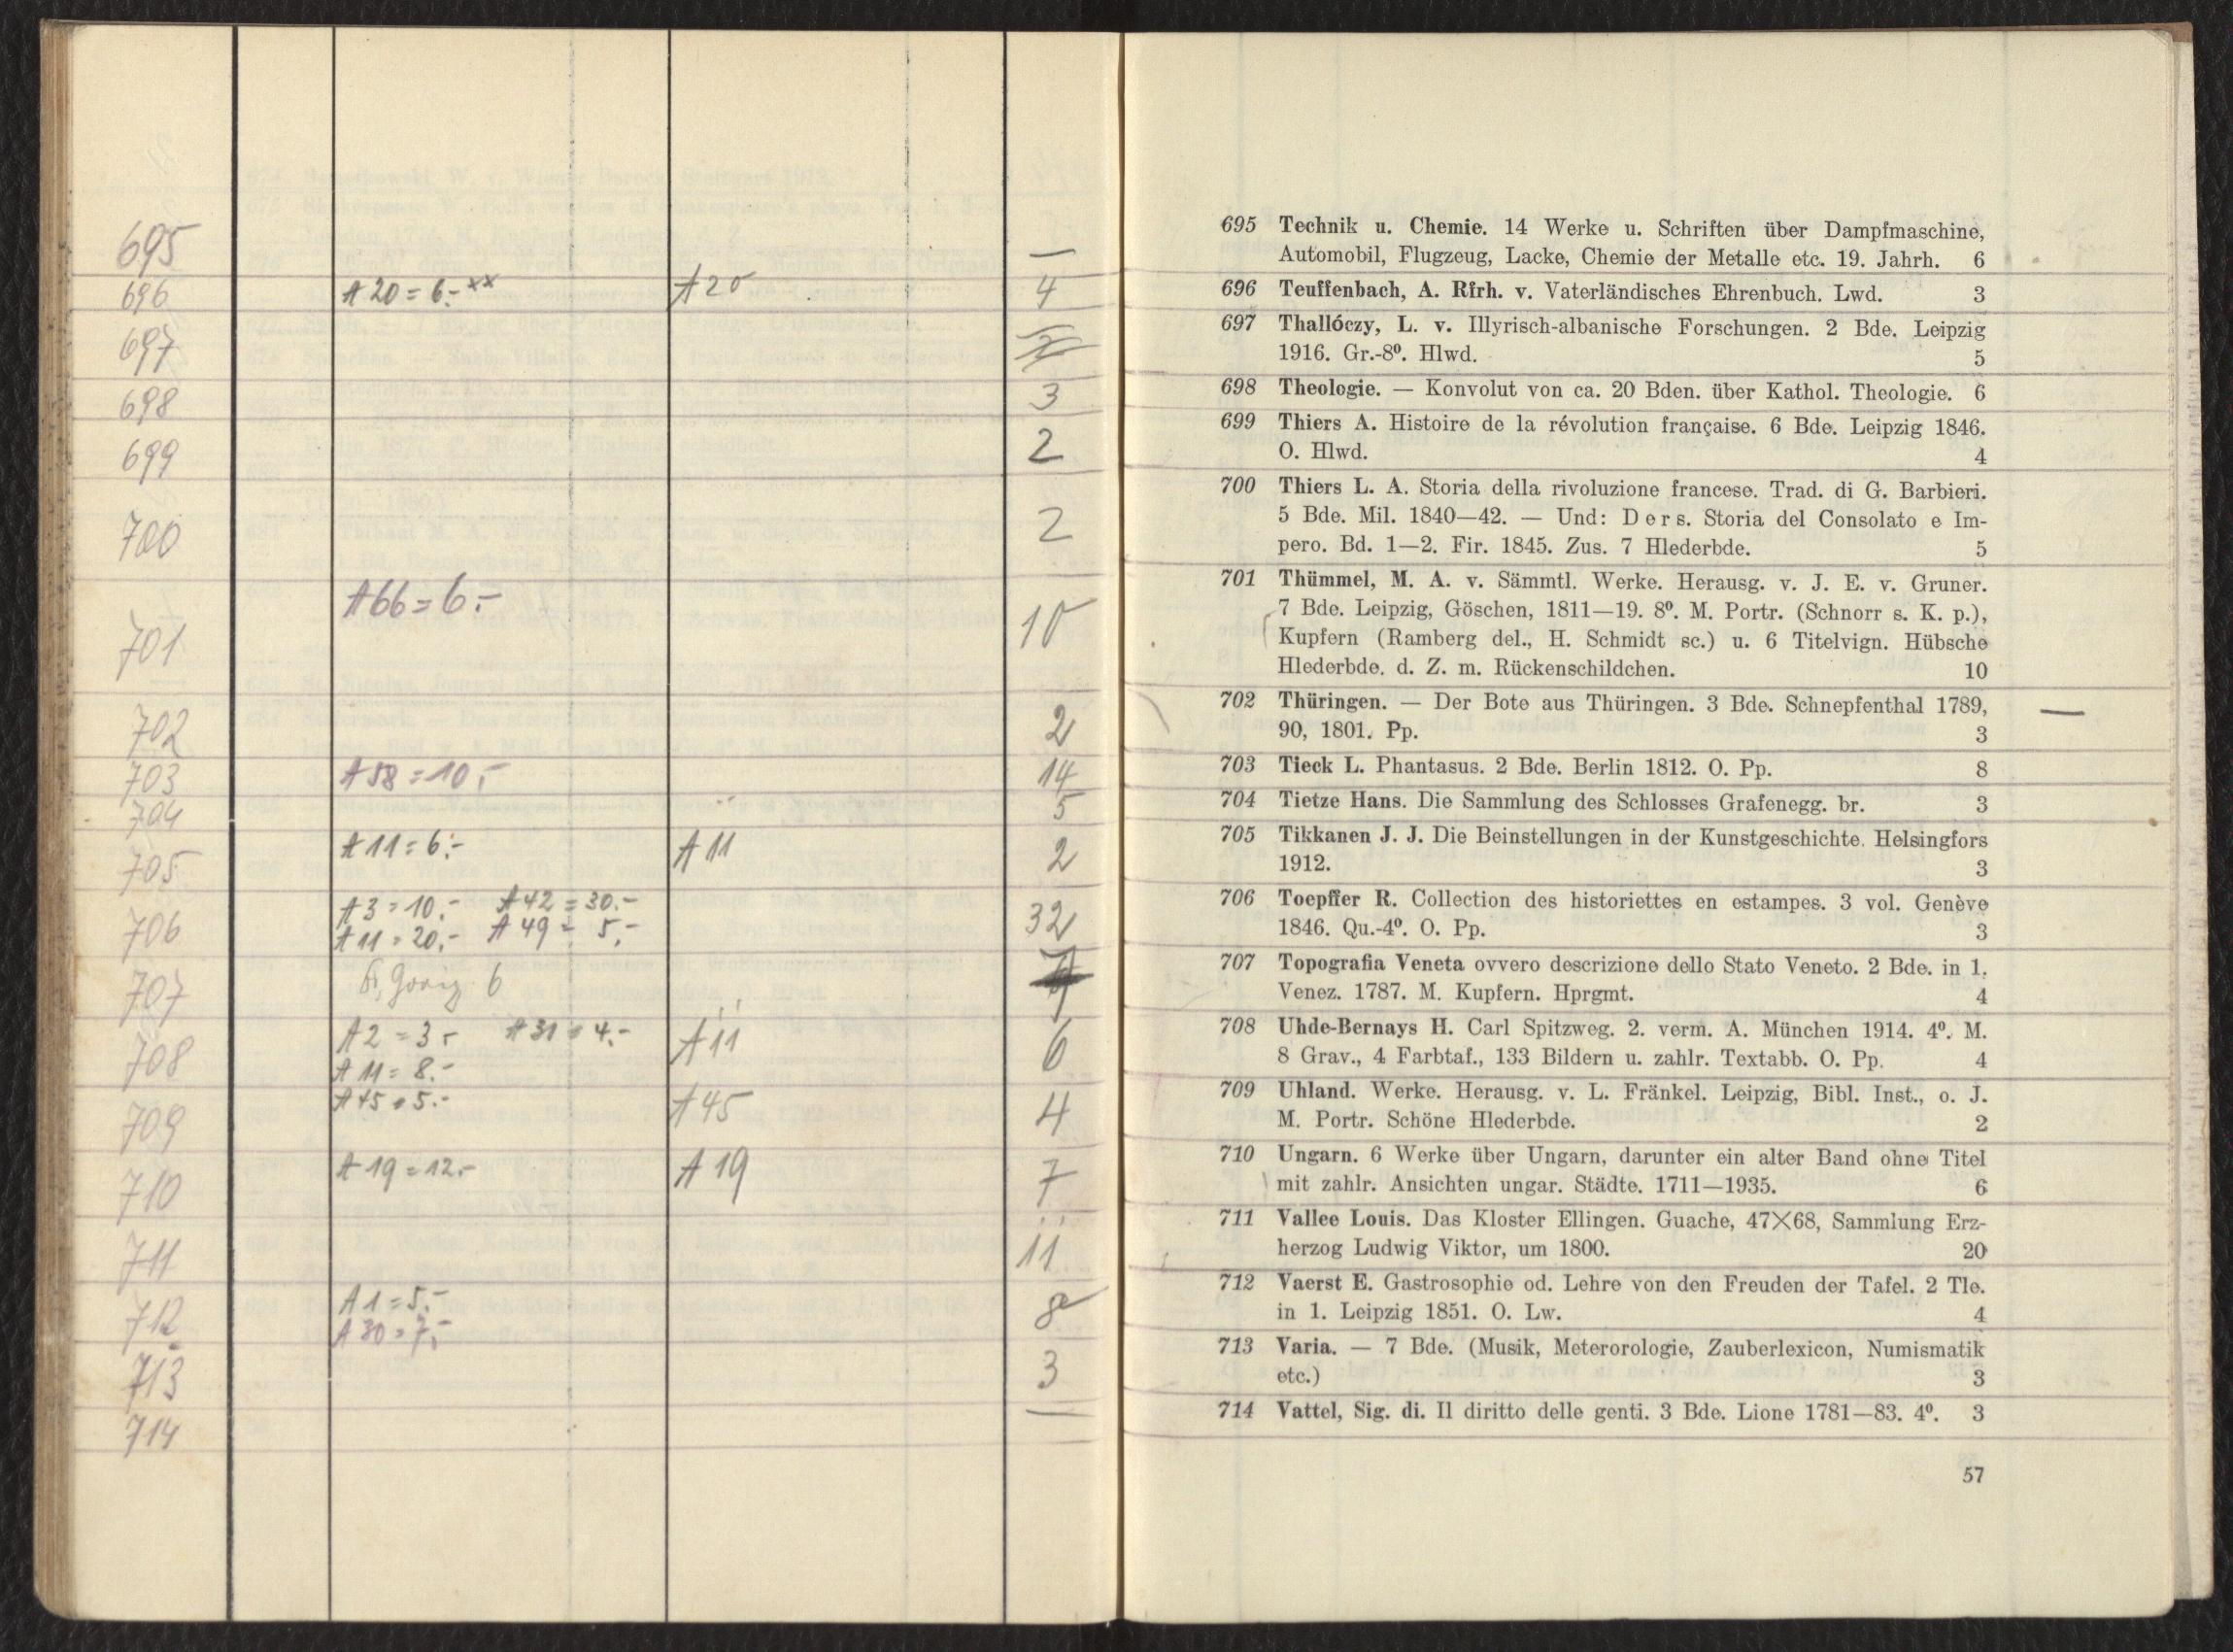 695 —
696 A 20 = 6.- xx A 20 4
697
698 3
699 2
700 2
A 66 = 6.-
701 10
702 2
703 A 58 = 10,- 14
704 5
705 A 11 = 6.- A 11 2
A 3 = 10.- A 42 = 30.-
706 A 11 = 20,- A 49 = 5,- 32
707 6
708 A 2 = 3.- A 31 = 4.- A 11 6
A 11 = 8.-
709 A 45 = 5.- A 45 4
710 A 19 = 12.- A 19 7
711 11
A 1 = 5.-
712 A 30 = 7,- 8
713 3
714 —
695 Technik u. Chemie. 14 Werke u. Schriften über Dampfmaschine,
Automobil, Flugzeug, Lacke, Chemie der Metalle etc. 19. Jahrh. 6
696 Teuffenbach, A. Rfrh. v. Vaterländisches Ehrenbuch. Lwd. 3
697 Thallóczy, L. v. Illyrisch-albanische Forschungen. 2 Bde. Leipzig
1916. Gr.-8⁰. Hlwd. 5
698 Theologie. — Konvolut von ca. 20 Bden. über Kathol. Theologie. 6
699 Thiers A. Histoire de la révolution française. 6 Bde. Leipzig 1846.
O. Hlwd. 4
700 Thiers L. A. Storia della rivoluzione francese. Trad. di G. Barbieri.
5 Bde. Mil. 1840—42. — Und: Ders. Storia del Consolato e Im-
pero. Bd. 1—2. Fir. 1845. Zus. 7 Hlederbde. 5
701 Thümmel, M. A. v. Sämmtl. Werke. Herausg. v. J. E. v. Gruner.
7 Bde. Leipzig, Göschen, 1811—19. 8⁰. M. Portr. (Schnorr s. K. p.),
Kupfern (Ramberg del., H. Schmidt sc.) u. 6 Titelvign. Hübsche
Hlederbde. d. Z. m. Rückenschildchen. 10
702 Thüringen. — Der Bote aus Thüringen. 3 Bde. Schnepfenthal 1789, —
90, 1801. Pp. 3
703 Tieck L. Phantasus. 2 Bde. Berlin 1812. O. Pp. 8
704 Tietze Hans. Die Sammlung des Schlosses Grafenegg. br. 3
705 Tikkanen J. J. Die Beinstellungen in der Kunstgeschichte. Helsingfors
1912. 3
706 Toepffer R. Collection des historiettes en estampes. 3 vol. Genève
1846. Qu.-4⁰. O. Pp. 3
707 Topografia Veneta ovvero descrizione dello Stato Veneto. 2 Bde. in 1.
Venez. 1787. M. Kupfern. Hprgmt. 4
708 Uhde-Bernays H. Carl Spitzweg. 2. verm. A. München 1914. 4⁰. M.
8 Grav., 4 Farbtaf., 133 Bildern u. zahlr. Textabb. O. Pp. 4
709 Uhland. Werke. Herausg. v. L. Fränkel. Leipzig, Bibl. Inst., o. J.
M. Portr. Schöne Hlederbde. 2
710 Ungarn. 6 Werke über Ungarn, darunter ein alter Band ohne Titel
mit zahlr. Ansichten ungar. Städte. 1711—1935. 6
711 Vallee Louis. Das Kloster Ellingen. Guache, 47×68, Sammlung Erz-
herzog Ludwig Viktor, um 1800. 20
712 Vaerst E. Gastrosophie od. Lehre von den Freuden der Tafel. 2 Tle.
in 1. Leipzig 1851. O. Lw. 4
713 Varia. — 7 Bde. (Musik, Meterorologie, Zauberlexicon, Numismatik
etc.) 3
714 Vattel, Sig. di. Il diritto delle genti. 3 Bde. Lione 1781—83. 4⁰. 3
57